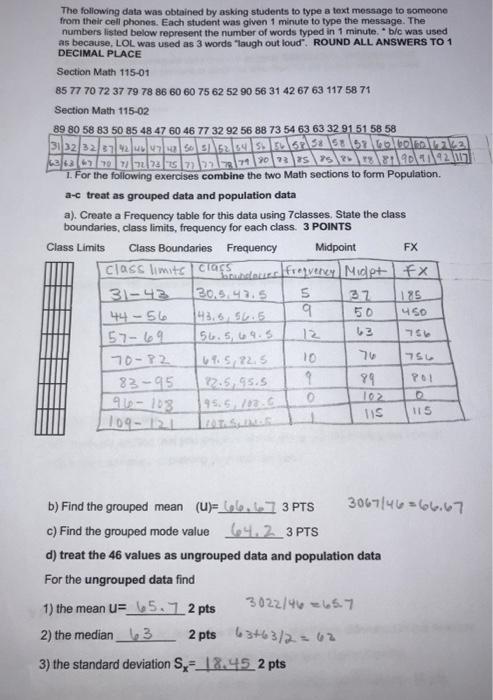 The following data was obtained by asking students to type a text message to someone
from their cell phones. Each student was given 1 minute to type the message. The
numbers listed below represent the number of words typed in 1 minute. * b/c was used
as because, LOL was used as 3 words "laugh out loud". ROUND ALL ANSWERS TO 1
DECIMAL PLACE
Section Math 115-01
85 77 70 72 37 79 78 86 60 60 75 62 52 90 56 31 42 67 63 117 58 71
Section Math 115-02
89 80 58 83 50 85 48 47 60 46 77 32 92 56 88 73 54 63 63 32 91 51 58 58
31 32 32 37 42 46 47 48 50 51 52 54 56 56 58 58 58 58 60 60 60 62 63
63 63 67 70 71 72 73 75 77 77 78 79 80 83 85 85 86 88 89 90 91 92 117
1. For the following exercises combine the two Math sections to form Population.
a-c treat as grouped data and population data
a). Create a Frequency table for this data using 7classes. State the class
boundaries, class limits, frequency for each class. 3 POINTS
Class Limits Class Boundaries Frequency Midpoint FX
class limits class boundaries frequency Midpt fx
31-43 30.5, 43.5 5 37 185
44-56 43.5, 56.5 9 50 450
57-69 56.5, 69.5 12 63 756
70-82 69.5, 82.5 10 76 756
83-95 82.5, 95.5 9 89 801
96-108 95.5, 108.5 0 102 0
109-121 1 115 115
b) Find the grouped mean (U)= 66.67 3 PTS 3067/46=66.67
c) Find the grouped mode value 64.2 3 PTS
d) treat the 46 values as ungrouped data and population data
For the ungrouped data find
1) the mean U= 65.7 2 pts 3022/46=65.7
2) the median 63 2 pts 63+63/2=63
3) the standard deviation Sx= 18.45 2 pts